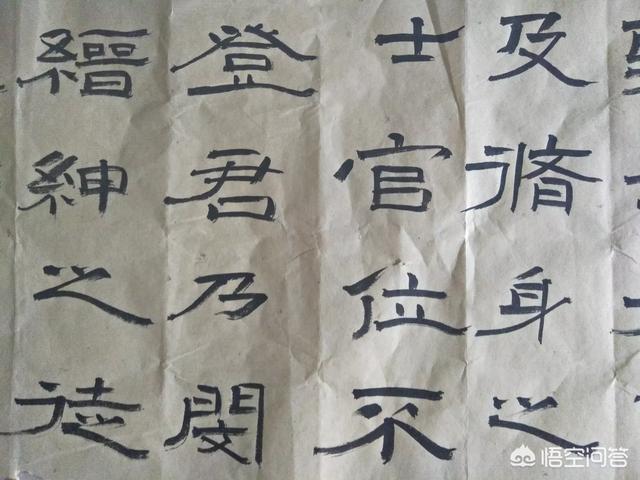 及脩身之
士官位不
登君乃閔
縉紳之徒
悟空问答